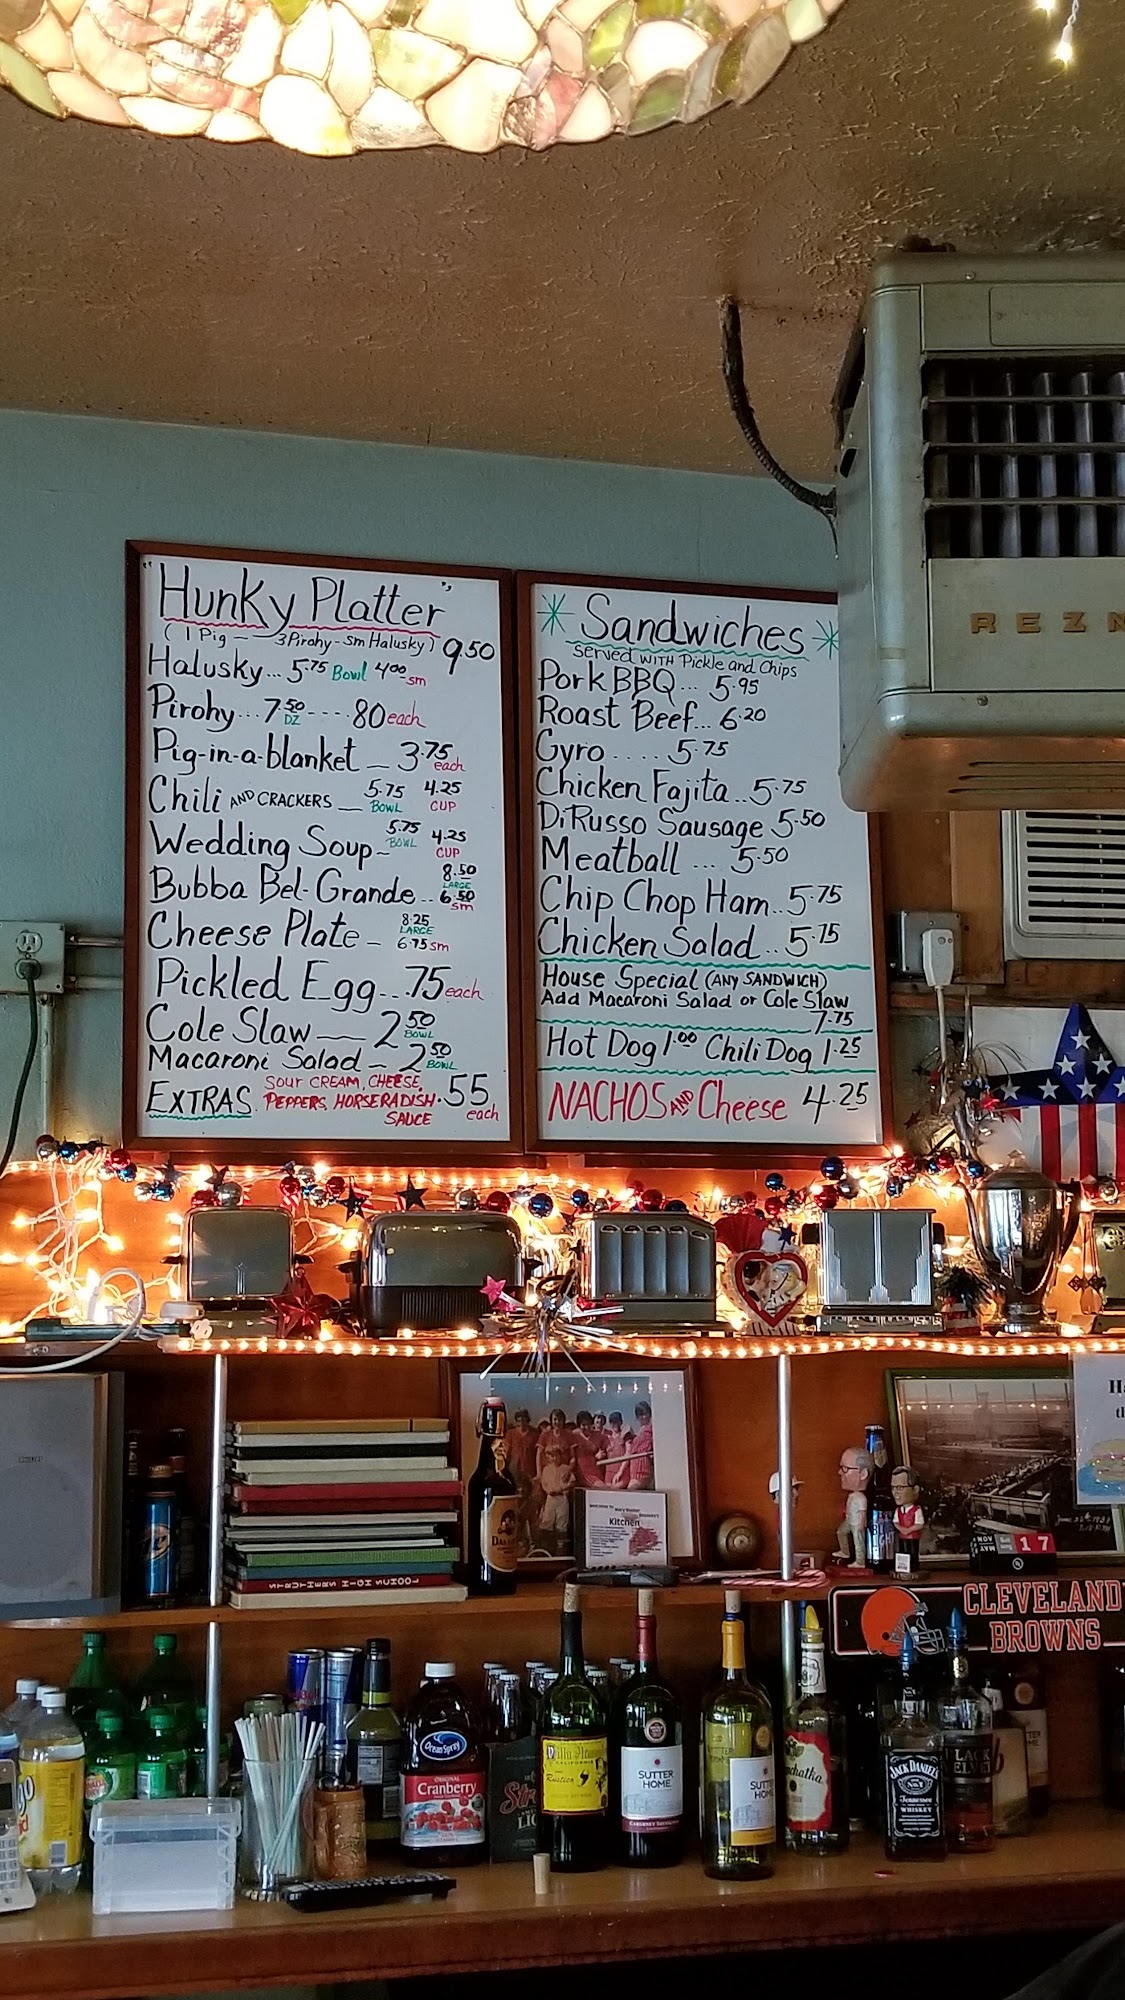 "Hunky Platter"
( 1 Pig — 3 Pirohy - sm Halusky) 9.50
Halusky... 5.75 Bowl 4.00 sm
Pirohy... 7.50 DZ ---- .80 each
Pig-in-a-blanket — 3.75 each
Chili AND CRACKERS — 5.75 BOWL 4.25 CUP
Wedding Soup ~ 5.75 BOWL 4.25 CUP
Bubba Bel-Grande.. 8.50 LARGE 6.50 sm
Cheese Plate — 8.25 LARGE 6.75 sm
Pickled Egg... .75 each
Cole Slaw — 2.50 BOWL
Macaroni Salad — 2.50 BOWL
EXTRAS. SOUR CREAM, CHEESE, .55 each
PEPPERS, HORSERADISH.
SAUCE
Sandwiches
Served WITH Pickle and Chips
Pork BBQ... 5.95
Roast Beef... 6.20
Gyro..... 5.75
Chicken Fajita.. 5.75
DiRusso Sausage 5.50
Meatball ... 5.50
Chip Chop Ham.. 5.75
Chicken Salad .. 5.75
House Special (ANY SANDWICH)
Add Macaroni Salad or Cole Slaw
7.75
Hot Dog 1.00 Chili Dog 1.25
NACHOS AND Cheese 4.25
REZN
PHILIPS
STRUTHERS HIGH SCHOOL
Kitchen
NOV
17
CLEVELAND
BROWNS
Ocean Spray
Cranberry
Rustico
SUTTER
HOME
CABERNET SAUVIGNON
SUTTER
HOME
JACK DANIEL'S
Tennessee
WHISKEY